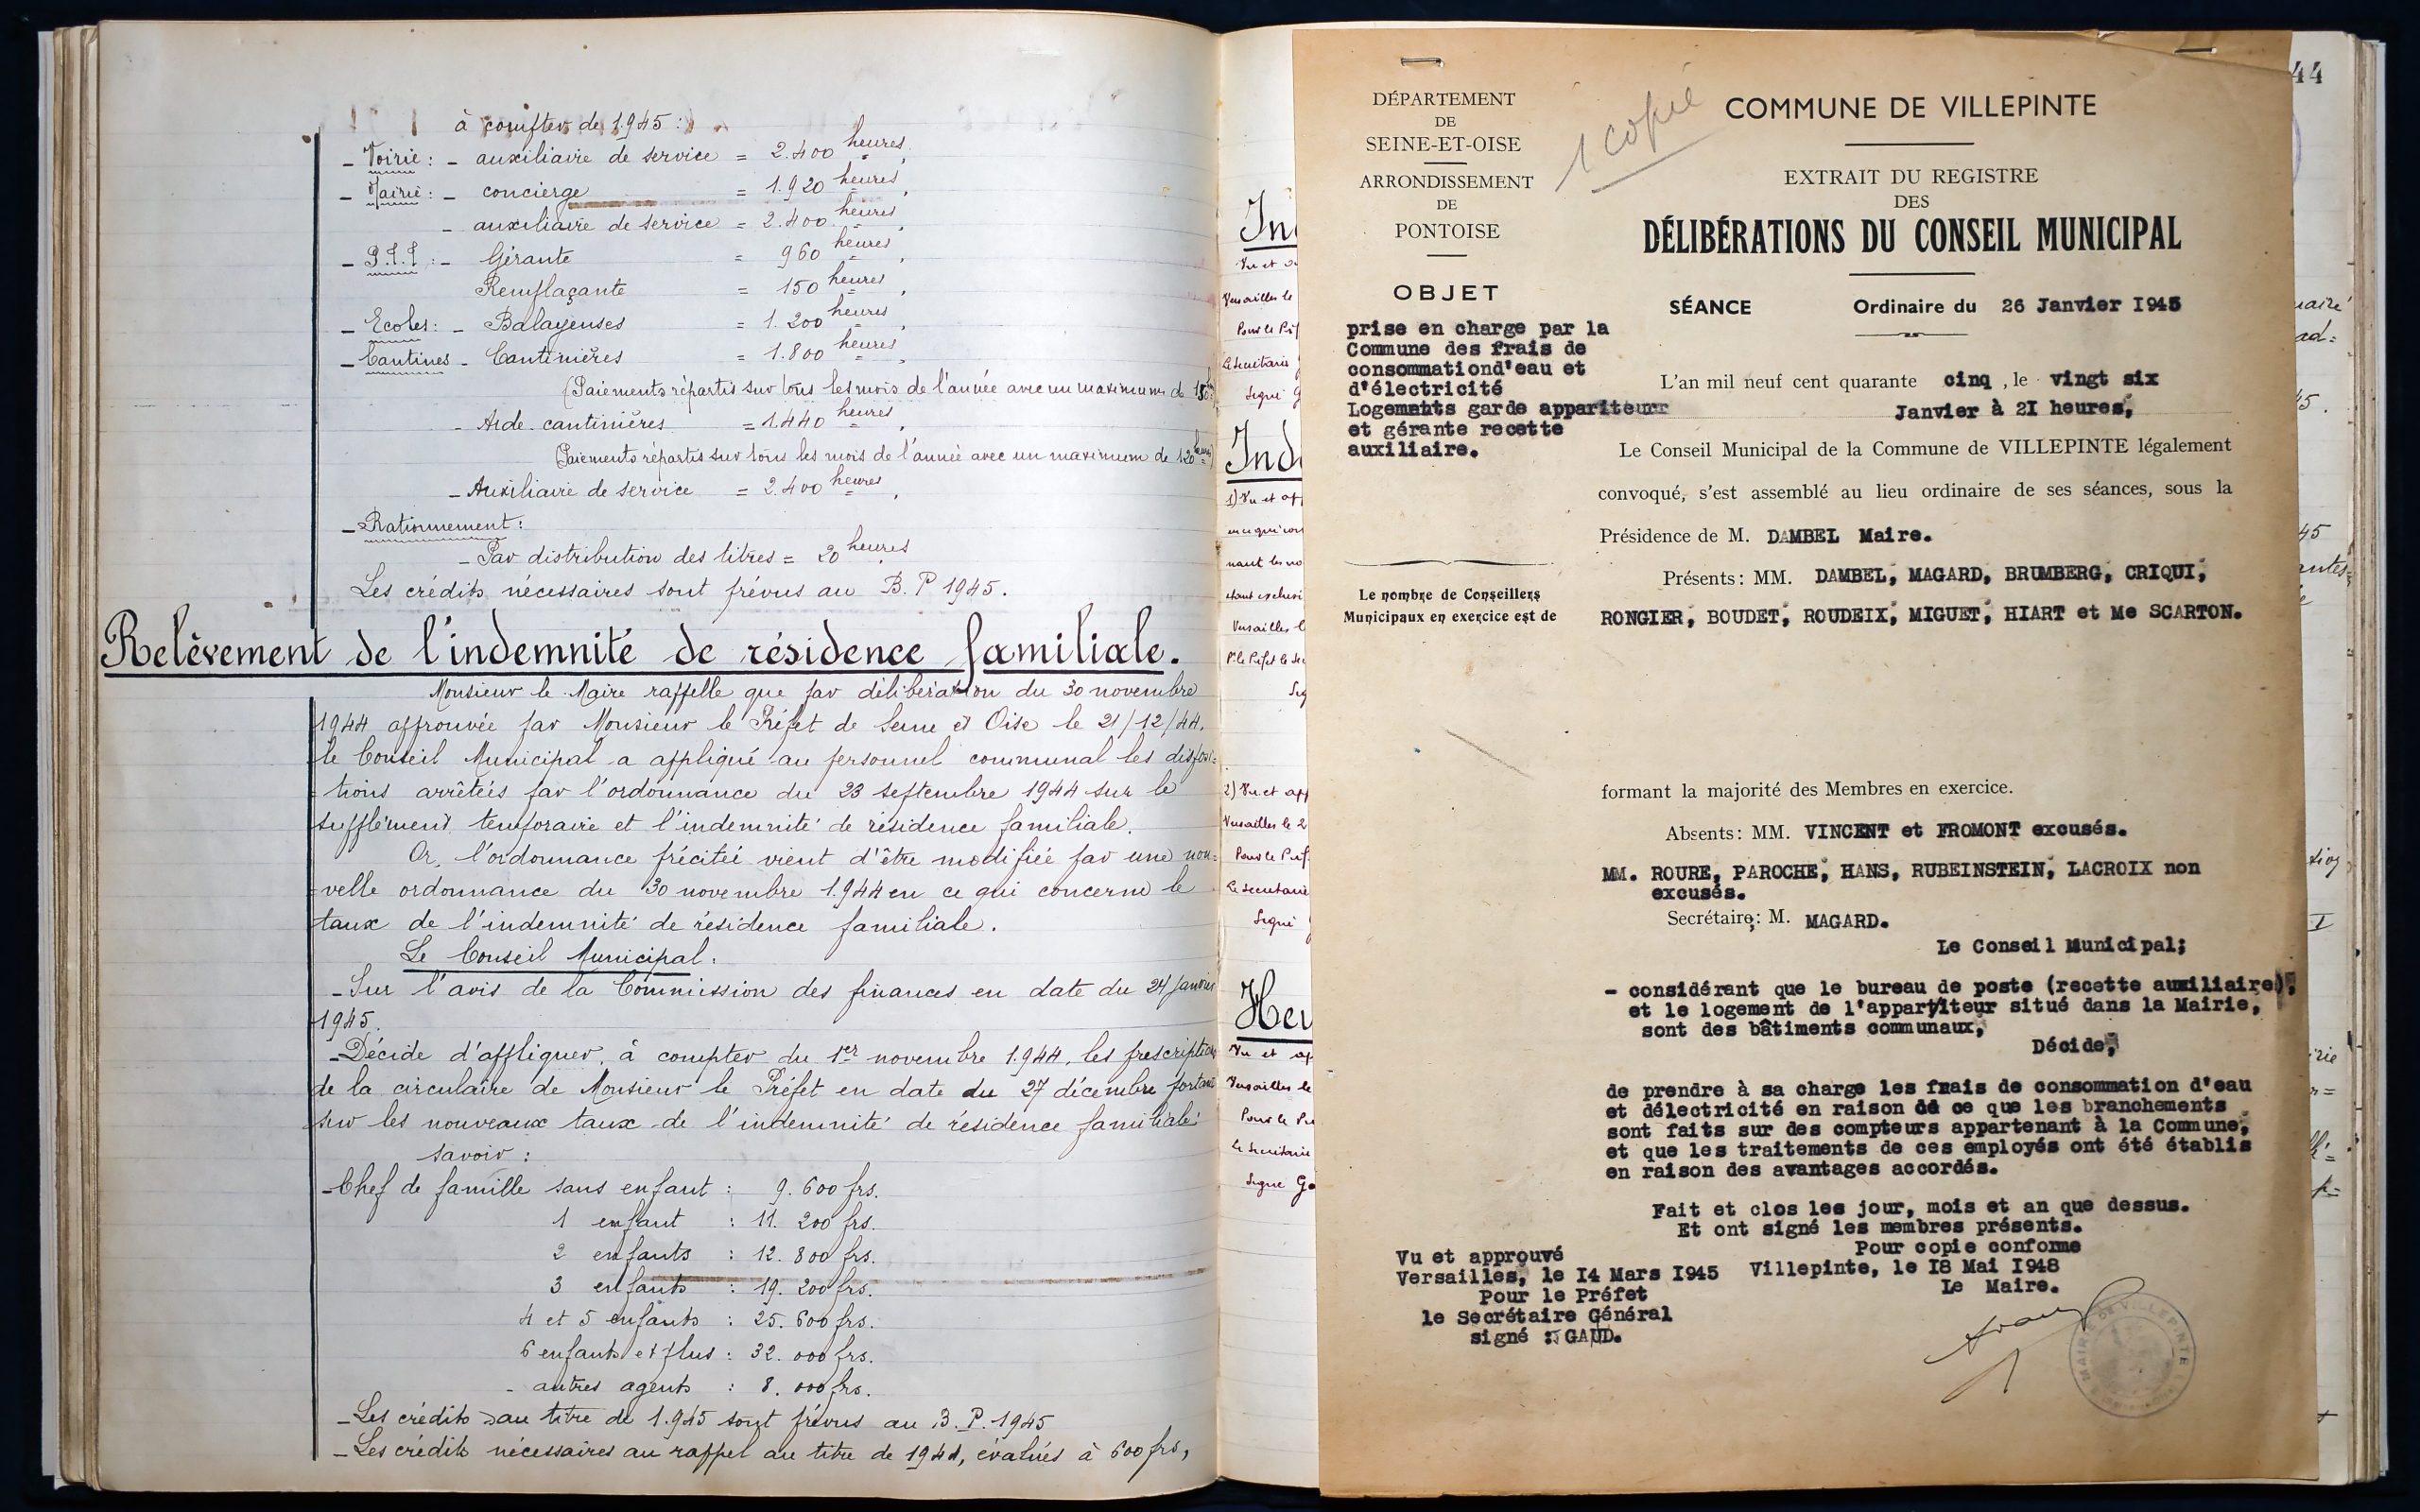 à compter de 1945 :
- Voirie : - auxiliaire de service = 2.400 heures,
- Mairie : - concierge = 1.920 heures,
- auxiliaire de service = 2.400 heures,
- P.T.T : - Gérante = 960 heures,
Remplaçante = 150 heures,
- Ecoles : - Balayeuses = 1.200 heures
- Cantines - Cantinières = 1.800 heures,
(Paiements répartis sur tous les mois de l'année avec un maximum de 150
- Aide-cantinières = 1.440 heures,
(Paiements répartis sur tous les mois de l'année avec un maximum de 120 heures)
- Auxiliaire de service = 2.400 heures,
- Rationnement :
- Par distribution des titres = 20 heures
Les crédits nécessaires sont prévus au B.P 1945.
Relèvement de l'indemnité de résidence familiale.
Monsieur le Maire rappelle que par délibération du 30 novembre
1944 approuvée par Monsieur le Préfet de Seine et Oise le 21/12/44.
le Conseil Municipal a appliqué au personnel communal les disposi=
=tions arrêtées par l'ordonnance du 23 septembre 1944 sur le
supplément temporaire et l'indemnité de résidence familiale.
Or, l'ordonnance précitée vient d'être modifiée par une nou=
=velle ordonnance du 30 novembre 1.944 en ce qui concerne le
taux de l'indemnité de résidence familiale.
Le Conseil Municipal.
- Sur l'avis de la Commission des finances en date du 24 Janvier
1945.
- Décide d'appliquer, à compter du 1er novembre 1.944, les prescriptions
de la circulaire de Monsieur le Préfet en date du 27 décembre portant
sur les nouveaux taux de l'indemnité de résidence familiale
savoir :
- Chef de famille sans enfant : 9.600 frs.
1 enfant : 11.200 frs.
2 enfants : 12.800 frs.
3 enfants : 19.200 frs.
4 et 5 enfants : 25.600 frs.
6 enfants et plus : 32.000 frs.
- autres agents : 8.000 frs.
- Les crédits au titre de 1.945 sont prévus au B.P. 1945
- Les crédits nécessaires au rappel au titre de 1944, évalués à 600 frs,
Vu et
Versailles le
Pour le
Signé
Ind
1) Vu et
Versailles
2) Vu et
Versailles le 2
Pour le
Le Secrétaire
Signé
Vu et
Versailles le
Pour le
Signé
44
DÉPARTEMENT
DE
SEINE-ET-OISE
ARRONDISSEMENT
DE
PONTOISE
1 copie
COMMUNE DE VILLEPINTE
EXTRAIT DU REGISTRE
DES
DÉLIBÉRATIONS DU CONSEIL MUNICIPAL
OBJET
prise en charge par la
Commune des frais de
consommationd'eau et
d'électricité
Logements garde appariteur
et gérante recette
auxiliaire.
Le nombre de Conseillers
Municipaux en exercice est de
SÉANCE Ordinaire du 26 Janvier I945
L'an mil neuf cent quarante cinq , le vingt six
Janvier à 2I heures,
Le Conseil Municipal de la Commune de VILLEPINTE légalement
convoqué, s'est assemblé au lieu ordinaire de ses séances, sous la
Présidence de M. DAMBEL Maire.
Présents : MM. DAMBEL, MAGARD, BRUMBERG, CRIQUI,
RONGIER, BOUDET, ROUDEIX, MIGUET, HIART et Me SCARTON.
formant la majorité des Membres en exercice.
Absents : MM. VINCENT et FROMONT excusés.
MM. ROURE, PAROCHE, HANS, RUBEINSTEIN, LACROIX non
excusés.
Secrétaire : M. MAGARD.
Le Conseil Municipal;
- considérant que le bureau de poste (recette auxiliaire),
et le logement de l'appartiteur situé dans la Mairie,
sont des bâtiments communaux,
Décide,
de prendre à sa charge les frais de consommation d'eau
et délectricité en raison de ce que les branchements
sont faits sur des compteurs appartenant à la Commune,
et que les traitements de ces employés ont été établis
en raison des avantages accordés.
Fait et clos les jour, mois et an que dessus.
Et ont signé les membres présents.
Pour copie conforme
Villepinte, le I8 Mai I948
Le Maire.
Vu et approuvé
Versailles, le I4 Mars I945
Pour le Préfet
le Secrétaire Général
signé : GAUD.
MAIRIE DE VILLEPINTE